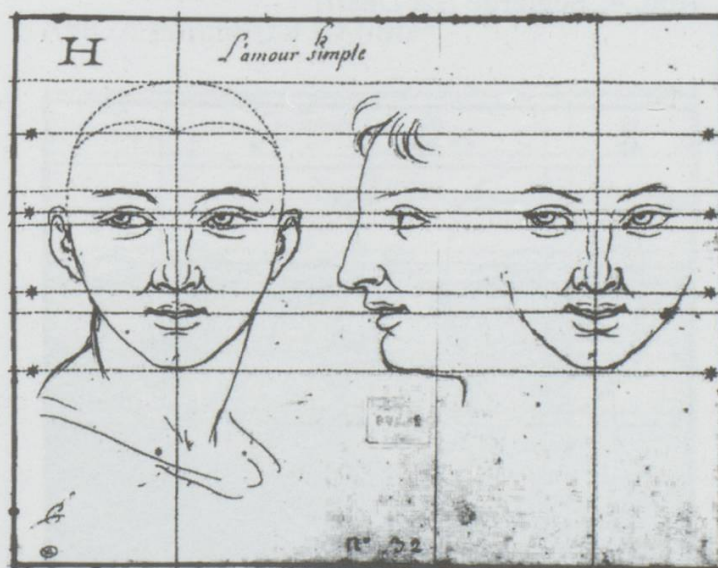 H
k
L'amour simple
N° 32